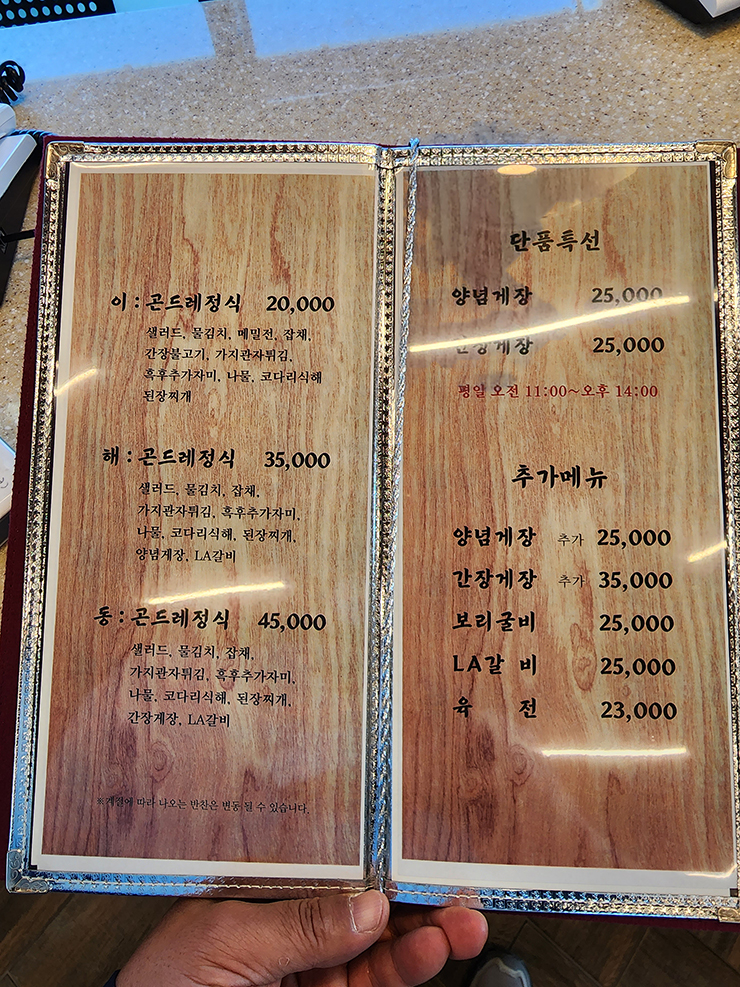 이 : 곤드레정식 20,000
샐러드, 물김치, 메밀전, 잡채,
간장불고기, 가지관자튀김,
흑후추가자미, 나물, 코다리식해
된장찌개
해 : 곤드레정식 35,000
샐러드, 물김치, 잡채,
가지관자튀김, 흑후추가자미,
나물, 코다리식해, 된장찌개,
양념게장, LA갈비
동 : 곤드레정식 45,000
샐러드, 물김치, 잡채,
가지관자튀김, 흑후추가자미,
나물, 코다리식해, 된장찌개,
간장게장, LA갈비
※계절에 따라 나오는 반찬은 변동 될 수 있습니다.
단품특선
양념게장 25,000
간장게장 25,000
평일 오전 11:00~오후 14:00
추가메뉴
양념게장 추가 25,000
간장게장 추가 35,000
보리굴비 25,000
LA갈 비 25,000
육 전 23,000